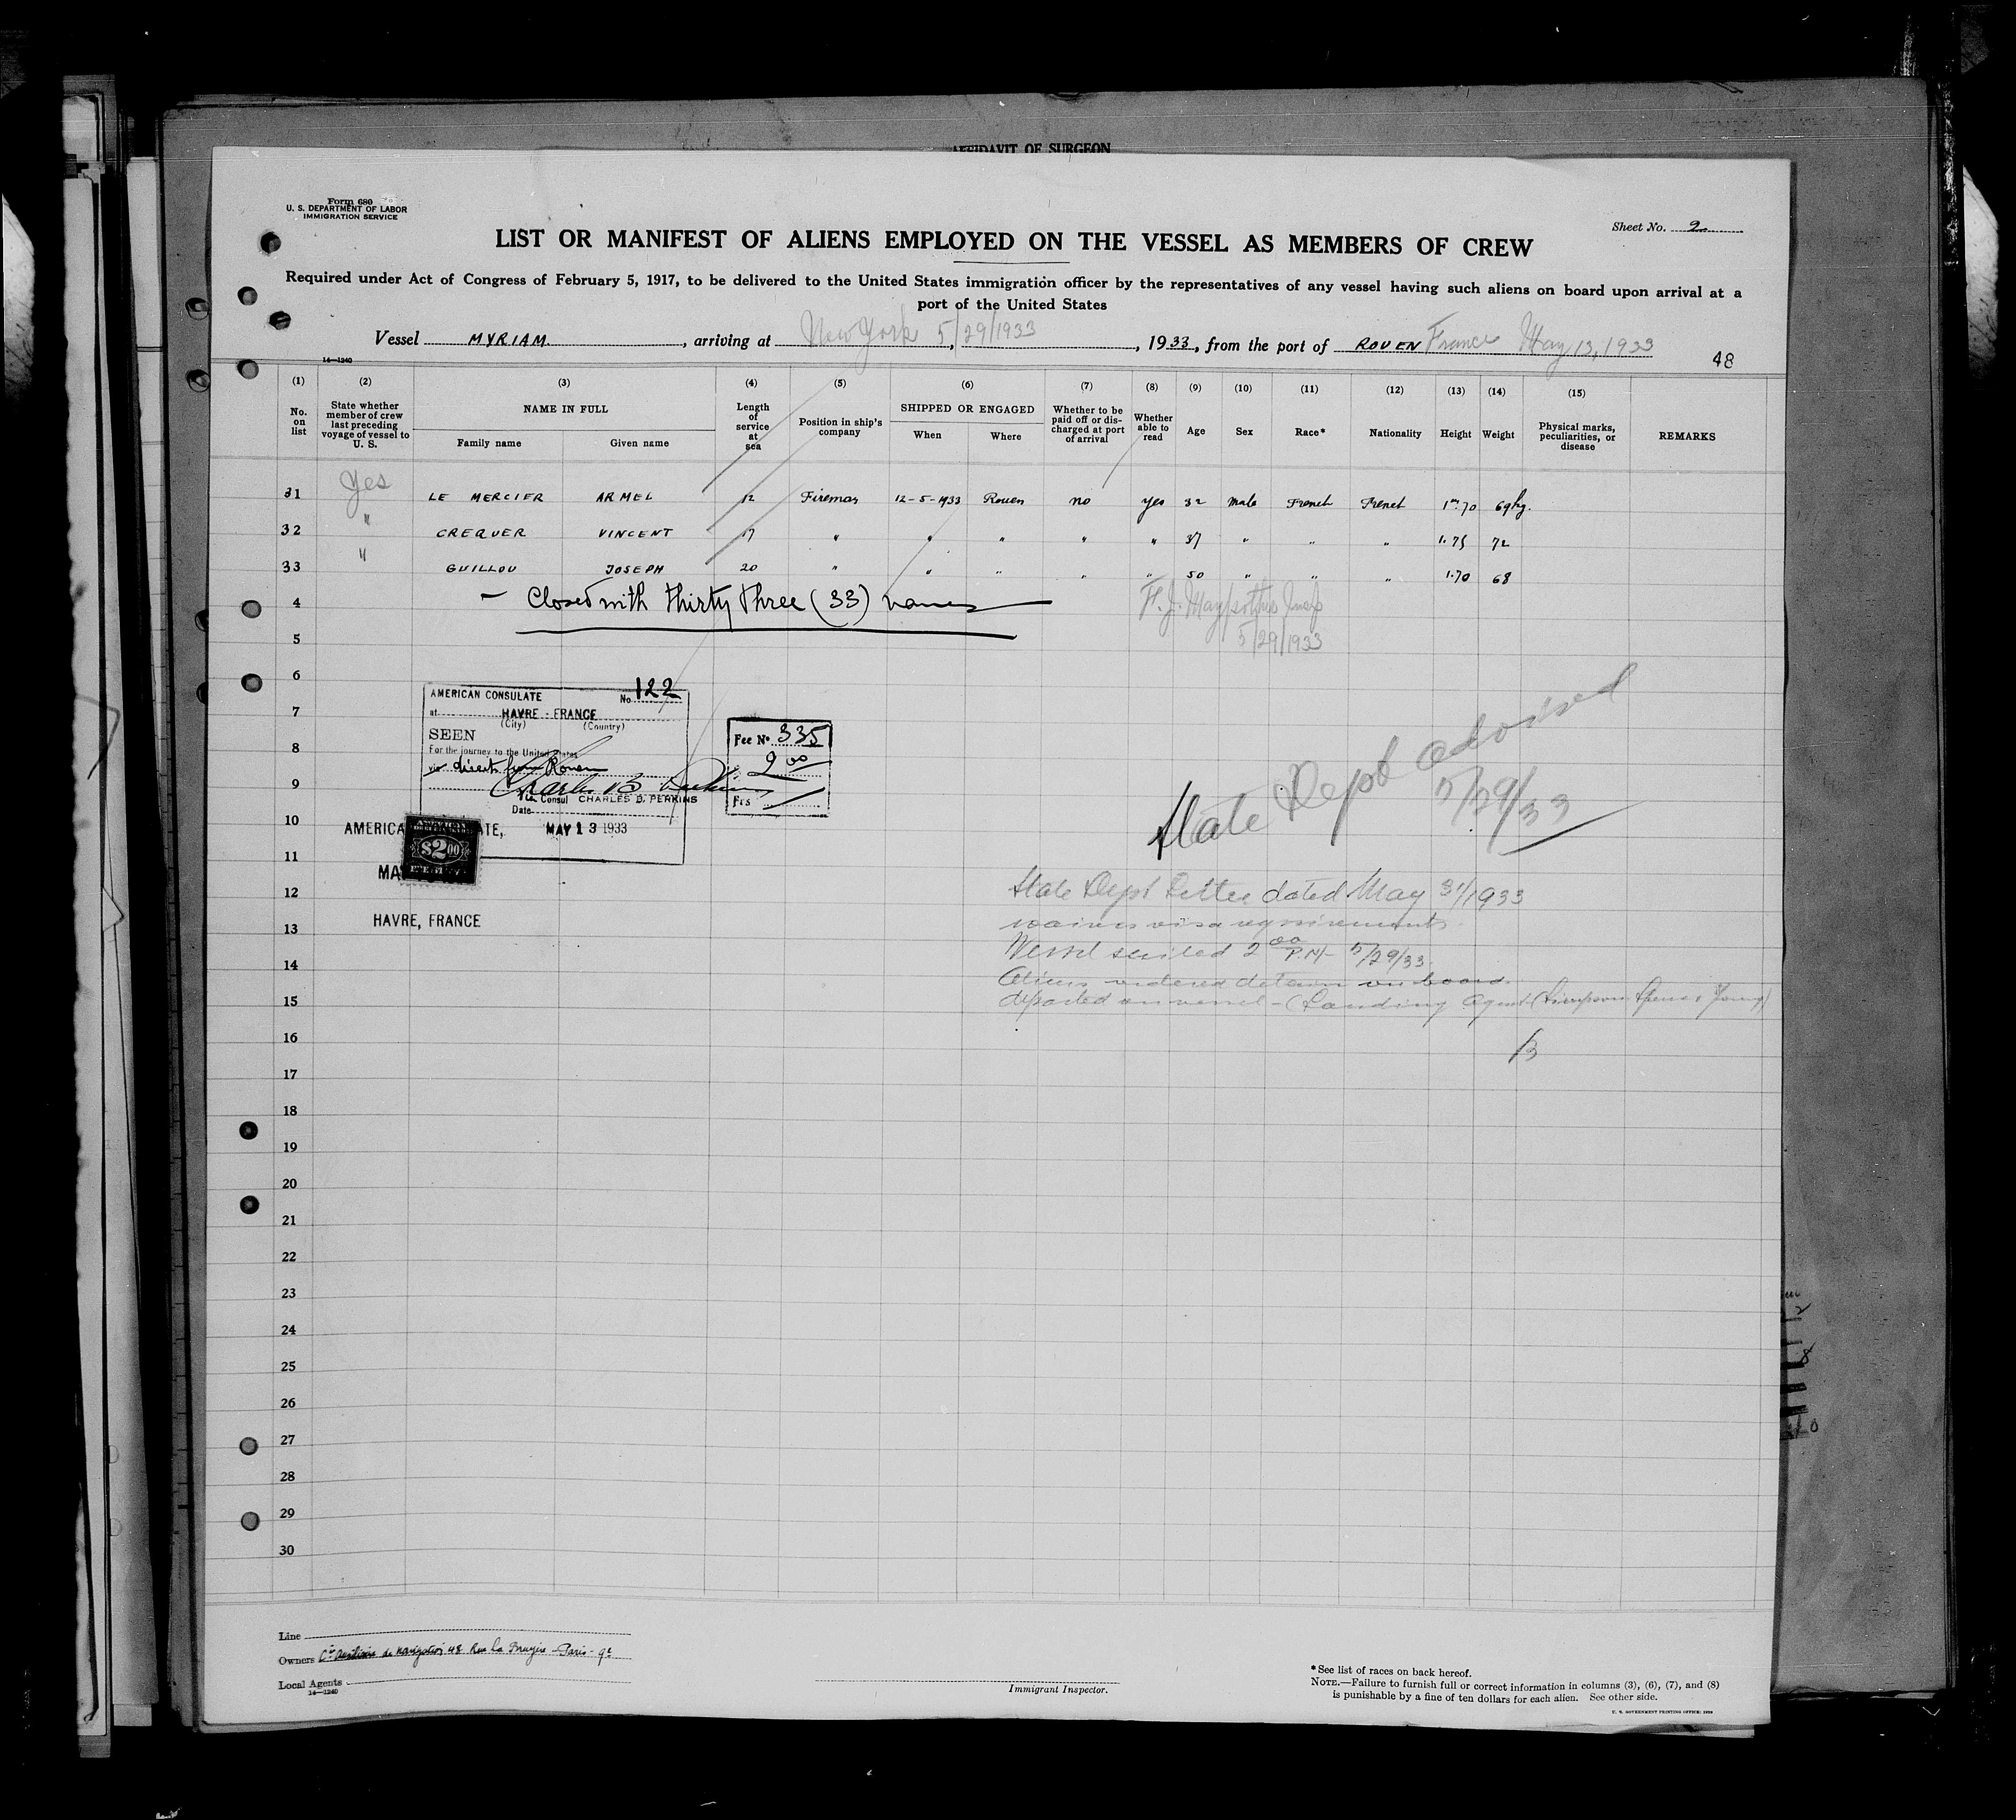 AFFIDAVIT OF SURGEON
Form 680
U. S. DEPARTMENT OF LABOR
IMMIGRATION SERVICE
Sheet No. 2
LIST OR MANIFEST OF ALIENS EMPLOYED ON THE VESSEL AS MEMBERS OF CREW
Required under Act of Congress of February 5, 1917, to be delivered to the United States immigration officer by the representatives of any vessel having such aliens on board upon arrival at a
port of the United States
Vessel MYRIAM, arriving at New York 5/29/1933, 1933, from the port of ROUEN France May 13, 1933
14—1240
48
(1) (2) (3) (4) (5) (6) (7) (8) (9) (10) (11) (12) (13) (14) (15)
No. on list
State whether member of crew last preceding voyage of vessel to U. S.
NAME IN FULL
Family name Given name
Length of service at sea
Position in ship's company
SHIPPED OR ENGAGED
When Where
Whether to be paid off or discharged at port of arrival
Whether able to read
Age
Sex
Race*
Nationality
Height
Weight
Physical marks, peculiarities, or disease
REMARKS
31 Yes LE MERCIER ARMEL 12 Fireman 12-5-1933 Rouen no yes 32 male French French 1m.70 69kg.
32 " CREQUER VINCENT 17 " " " " " 37 " " " 1.75 72
33 " GUILLOU JOSEPH 20 " " " " " 50 " " " 1.70 68
4 — Closed with thirty three (33) names —
5 5/29/1933
6
AMERICAN CONSULATE No 122
7 at HAVRE - FRANCE
(City) (Country)
SEEN
8 For the journey to the United States
via direct from Rouen
9 Charles B Perkins
Vice Consul CHARLES B. PERKINS
Date MAY 13 1933
Fee No 335
2 00
Frs
State Dept advised
5/29/33
10 AMERICA TE,
$2.00
11 MA
12 State Dept Letter dated May 31/1933
HAVRE, FRANCE
13 waives visa requirements.
14 Vessel sailed 2 00 P.M- 5/29/33.
Aliens ordered detain on board
15 departed on vessel - (Landing Agent
16
17
18
19
20
21
22
23
24
25
26
27
28
29
30
Line
Owners Cie Auxiliaire de Navigation 48 Rue La Bruyère - Paris - 9e
Local Agents
14—1240
Immigrant Inspector.
* See list of races on back hereof.
NOTE.—Failure to furnish full or correct information in columns (3), (6), (7), and (8)
is punishable by a fine of ten dollars for each alien. See other side.